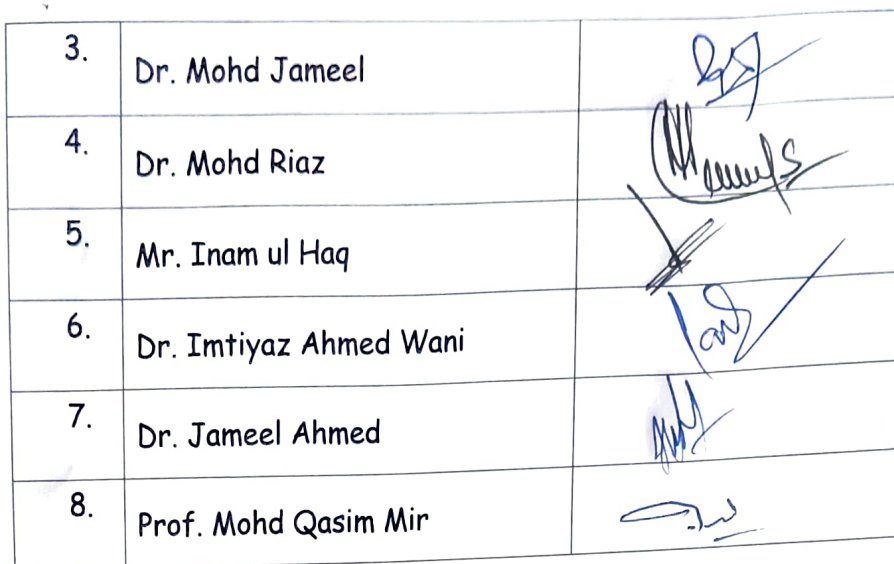 3. Dr. Mohd Jameel
4. Dr. Mohd Riaz
5. Mr. Inam ul Haq
6. Dr. Imtiyaz Ahmed Wani
7. Dr. Jameel Ahmed
8. Prof. Mohd Qasim Mir